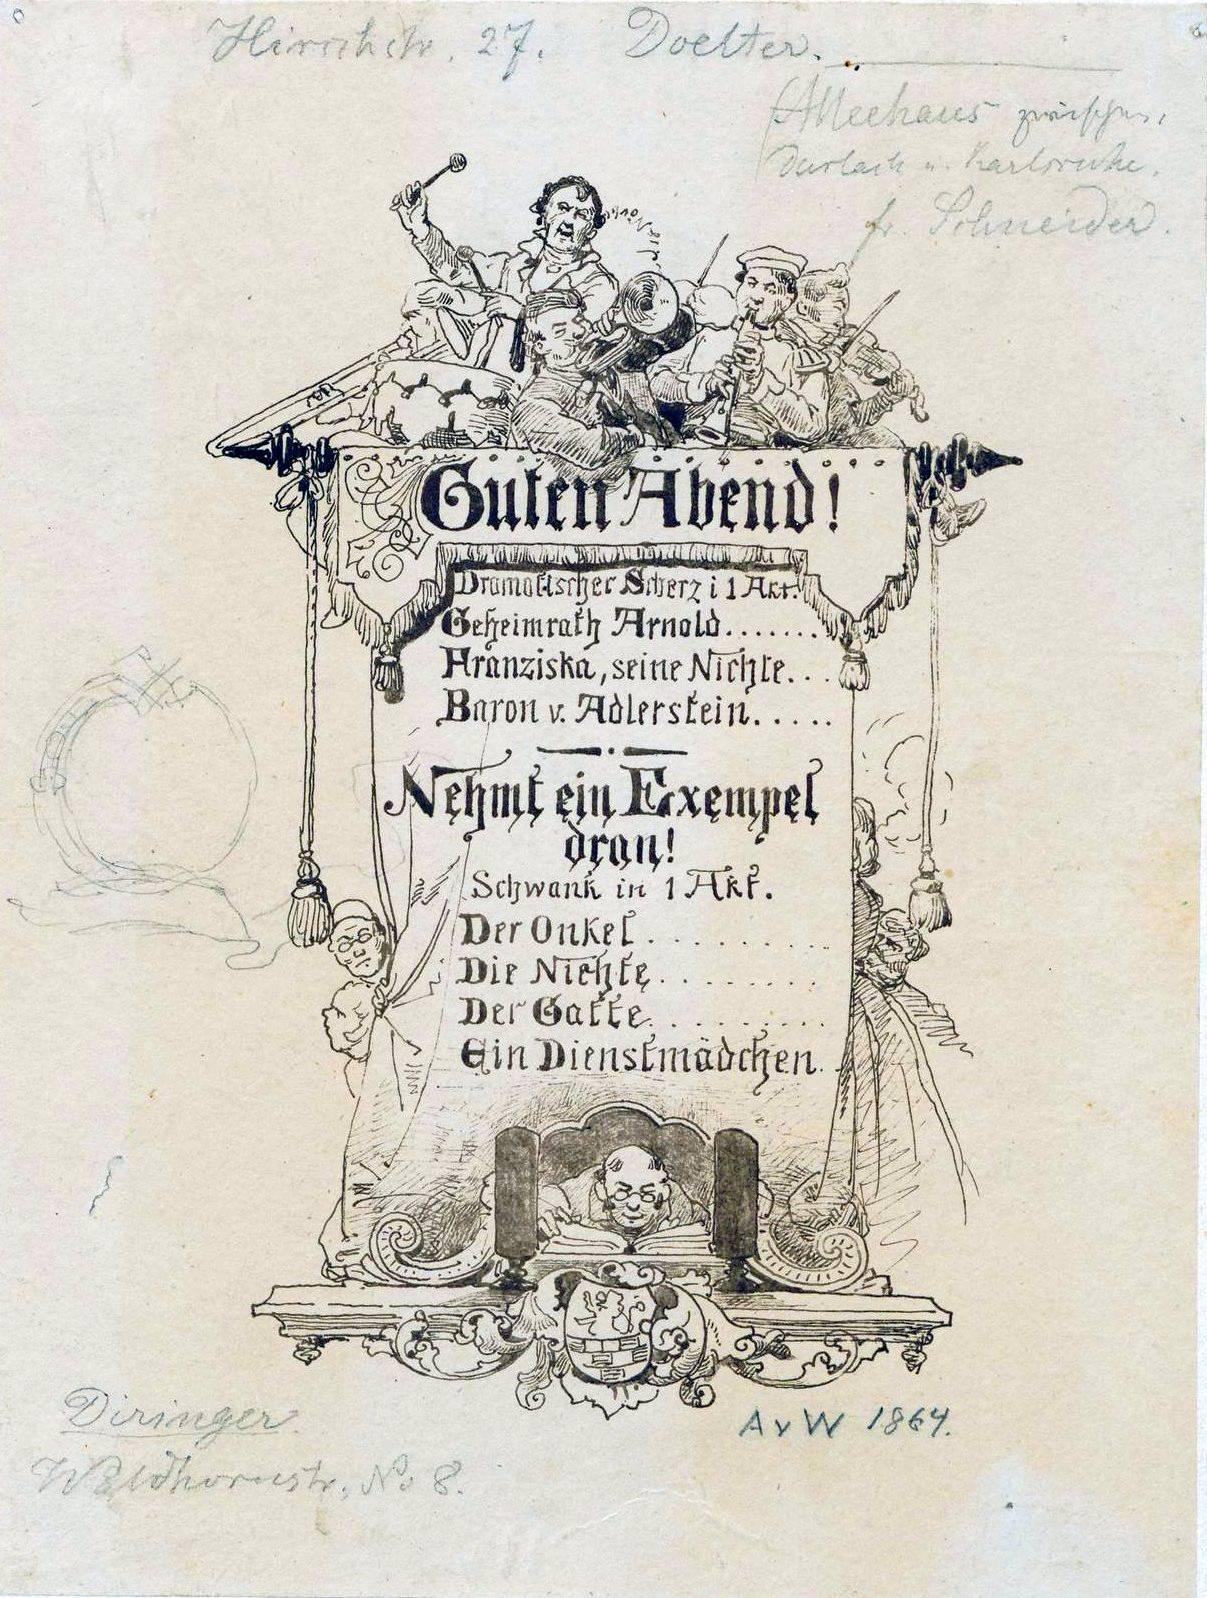 Hirschstr. 27. Doelter.
Alleehaus zwischen
Durlach u. Karlsruhe.
fr. Schneider.
Guten Abend!
Dramatischer Scherz i 1 Akt.
Geheimrath Arnold.......
Franziska, seine Nichte...
Baron v. Adlerstein.....
Nehmt ein Exempel
dran!
Schwank in 1 Akt.
Der Onkel..........
Die Nichte........
Der Gatte.........
Ein Dienstmädchen..
AvW 1864.
Diringer
Waldhornstr. No 8.